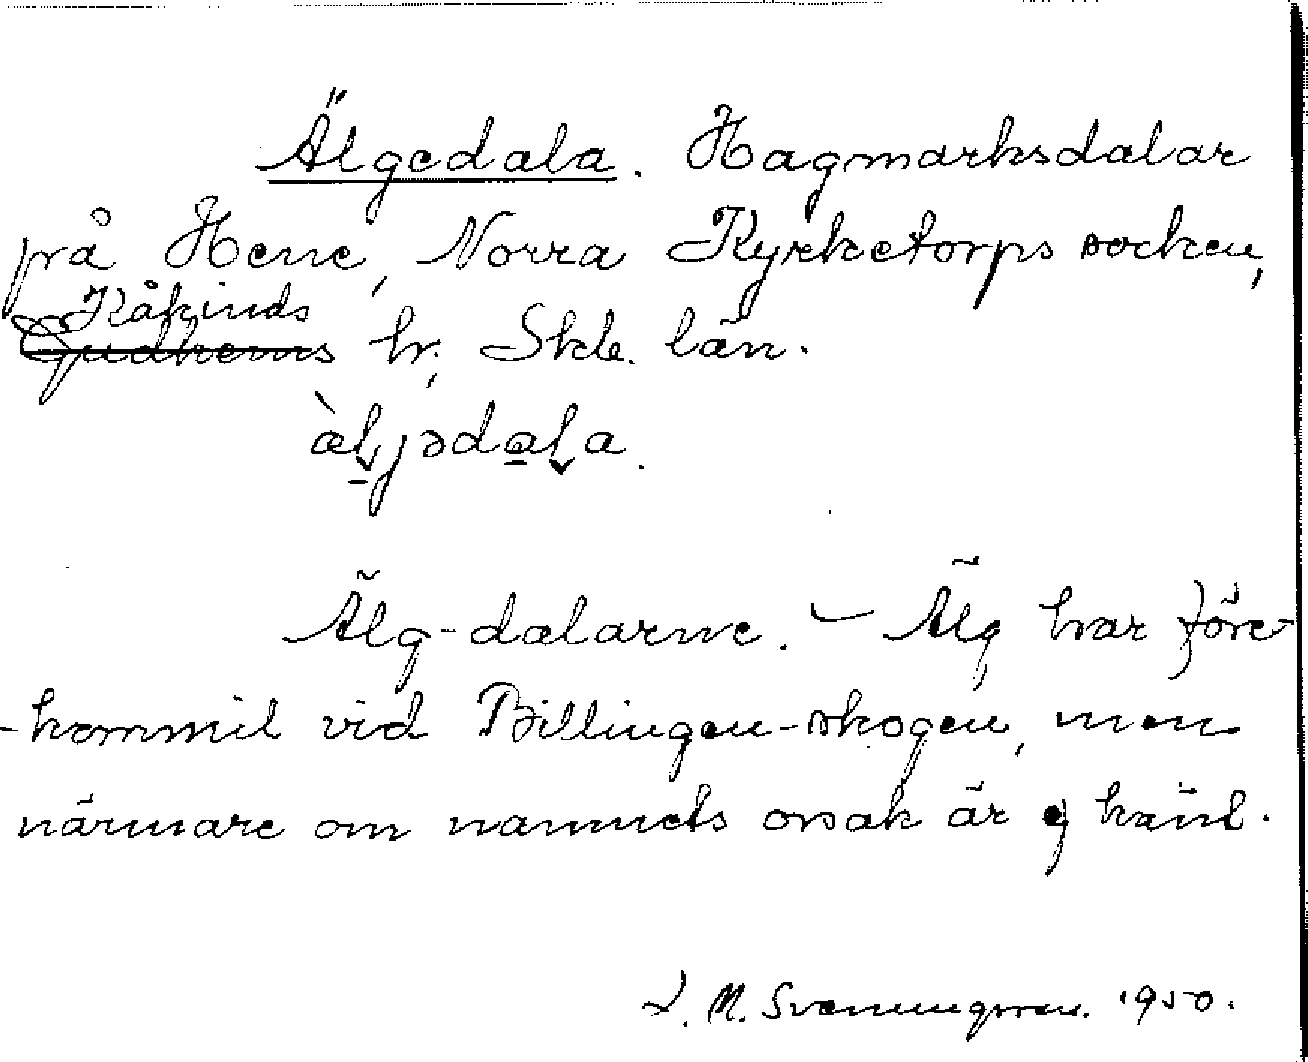 Älgedala. Hagmarksdalar
på Hene, Norra Kyrketorps socken,
Kåkinds
Gudhems hr, Skb. län.
àljədala.
Älg-dalarne. – Älg har före-
-kommit vid Billingen-skogen, men
närmare om namnets orsak är ej känt.
L. M. Svenungsson. 1950.